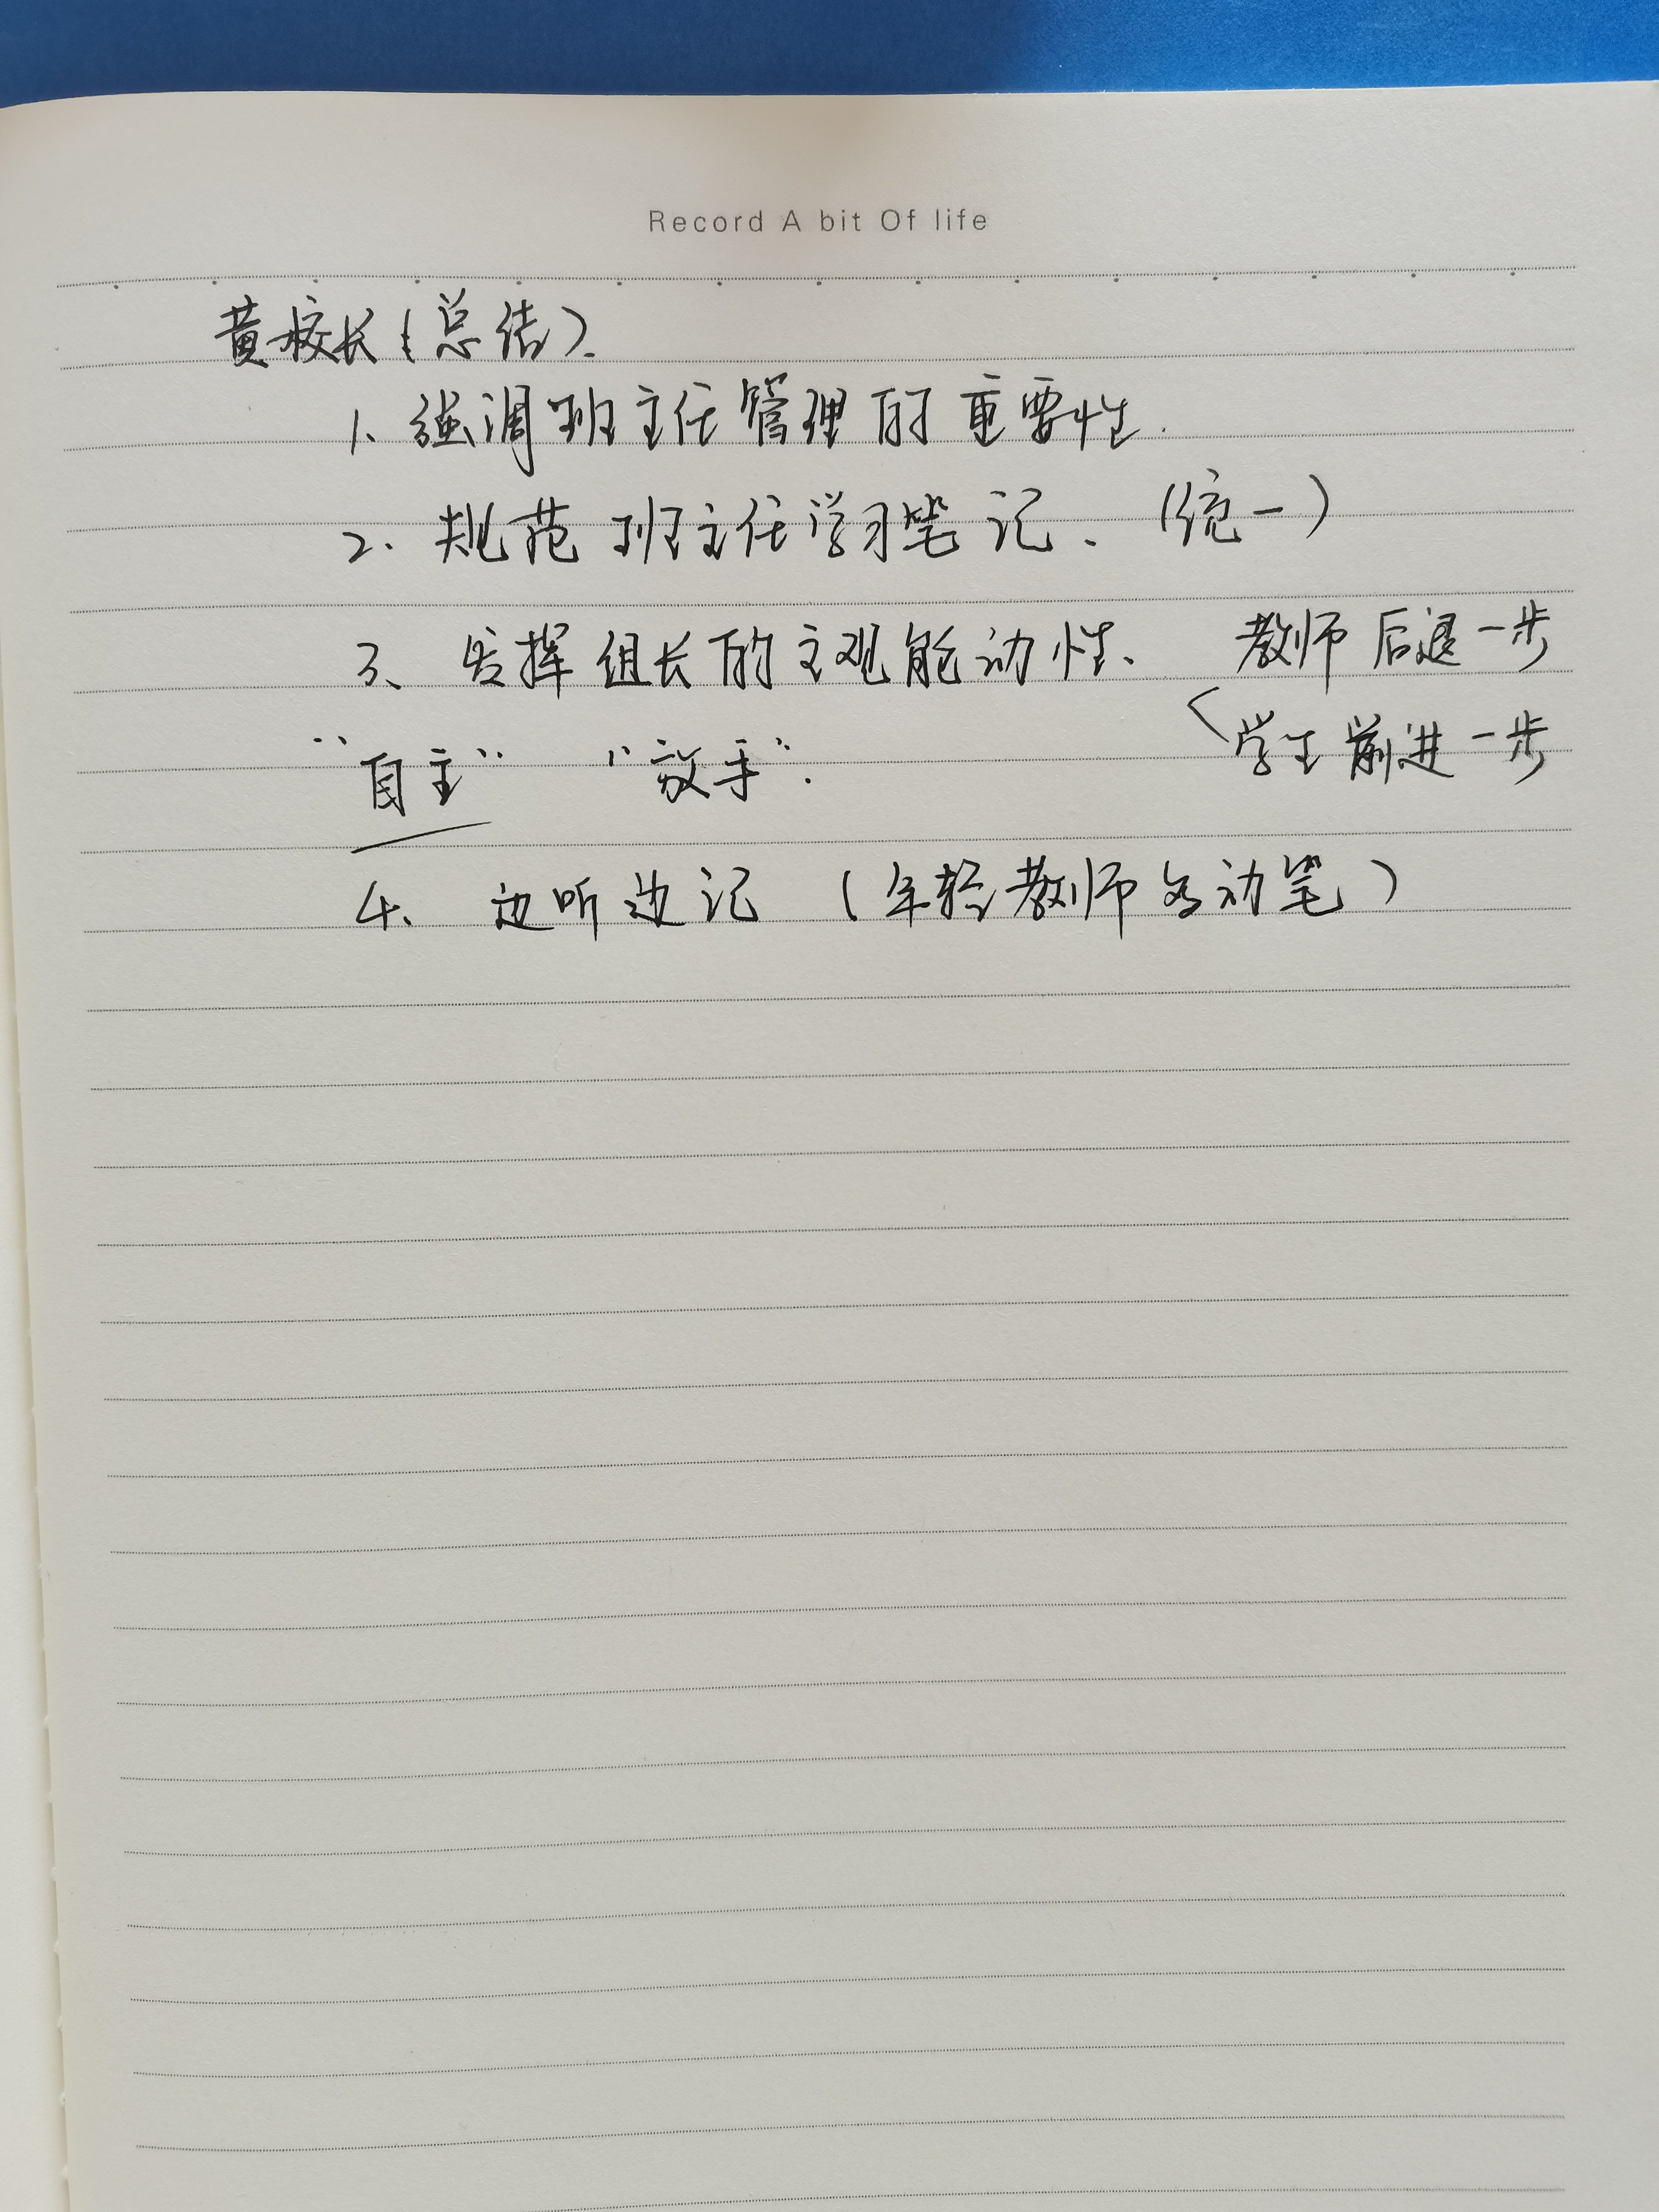 Record A bit Of life
黄校长（总结）.
1、强调班主任管理的重要性.
2. 规范班主任学习笔记、（统一）
3、发挥组长的主观能动性、 教师后退一步
学生前进一步
"自主" "放手".
4、边听边记（年轻教师多动笔）